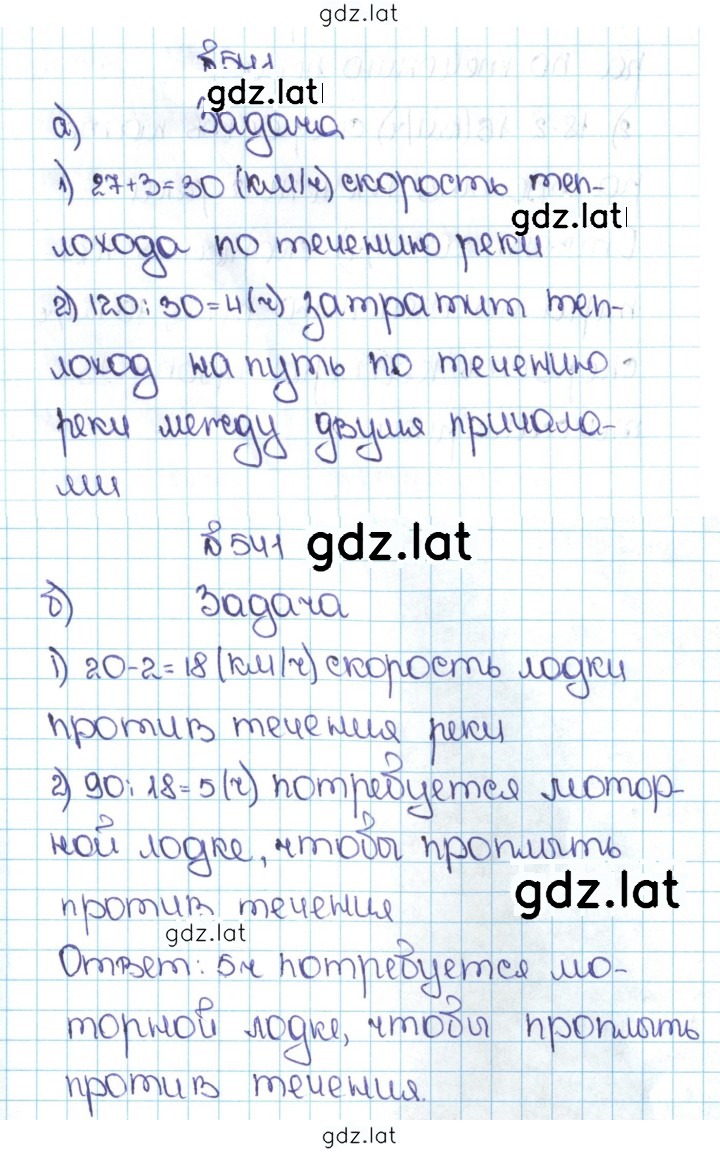 gdz.lat
№541
gdz.lat
а) Задача
1) 27+3=30 (км/ч) скорость теп-
gdz.lat
лохода по течению реки
2) 120:30=4(ч) затратит теп-
лоход на путь по течению
реки между двумя причала-
ми
№541 gdz.lat
б) Задача
1) 20-2=18 (км/ч) скорость лодки
против течения реки
2) 90:18=5(ч) потребуется мотор-
ной лодке, чтобы проплыть
gdz.lat
против течения
gdz.lat
Ответ: 5ч потребуется мо-
торной лодке, чтобы проплыть
против течения.
gdz.lat